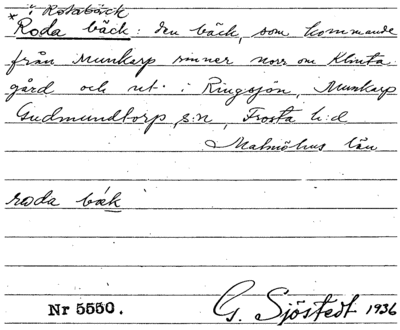 i Rotabäck
* Roda bäck: den bäck, som kommande
från Munkarp rinner norr om Klinta
gård och ut i Ringsjön, Munkarp
Gudmundtorp, s:n, Frosta h:d
Malmöhus län
roda bæk
Nr 5550. G. Sjöstedt 1936